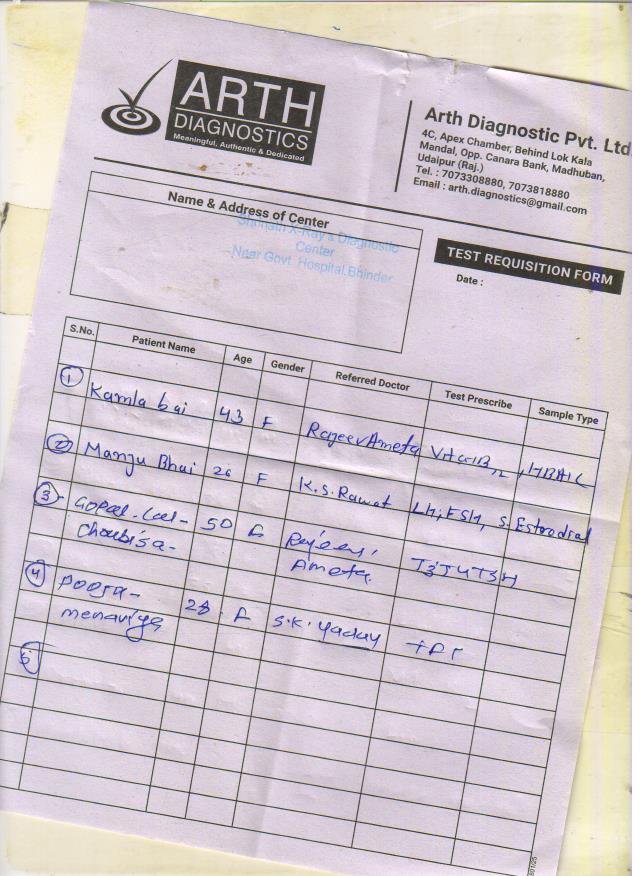 ARTH
DIAGNOSTICS
Meaningful, Authentic & Dedicated
Arth Diagnostic Pvt. Ltd.
4C, Apex Chamber, Behind Lok Kala
Mandal, Opp. Canara Bank, Madhuban,
Udaipur (Raj.)
Tel. : 7073308880, 7073818880
Email : arth.diagnostics@gmail.com
Name & Address of Center
Shrinath X-Ray & Diagnostic
Center
Near Govt. Hospital.Bhinder
TEST REQUISITION FORM
Date :
S.No. Patient Name Age Gender Referred Doctor Test Prescribe Sample Type
1 Kamla bai 43 F Rajeev Ameta Vit B12, HBA1C
2 Manju Bhai 26 F K.S. Rawat LH, FSH, S. Estrodial
3 Gopal Lal- 50 Rajeev,
Choubisa- Ameta. T3T4TSH
4 Pooja- 28. S.K. Yadav
menariya
5